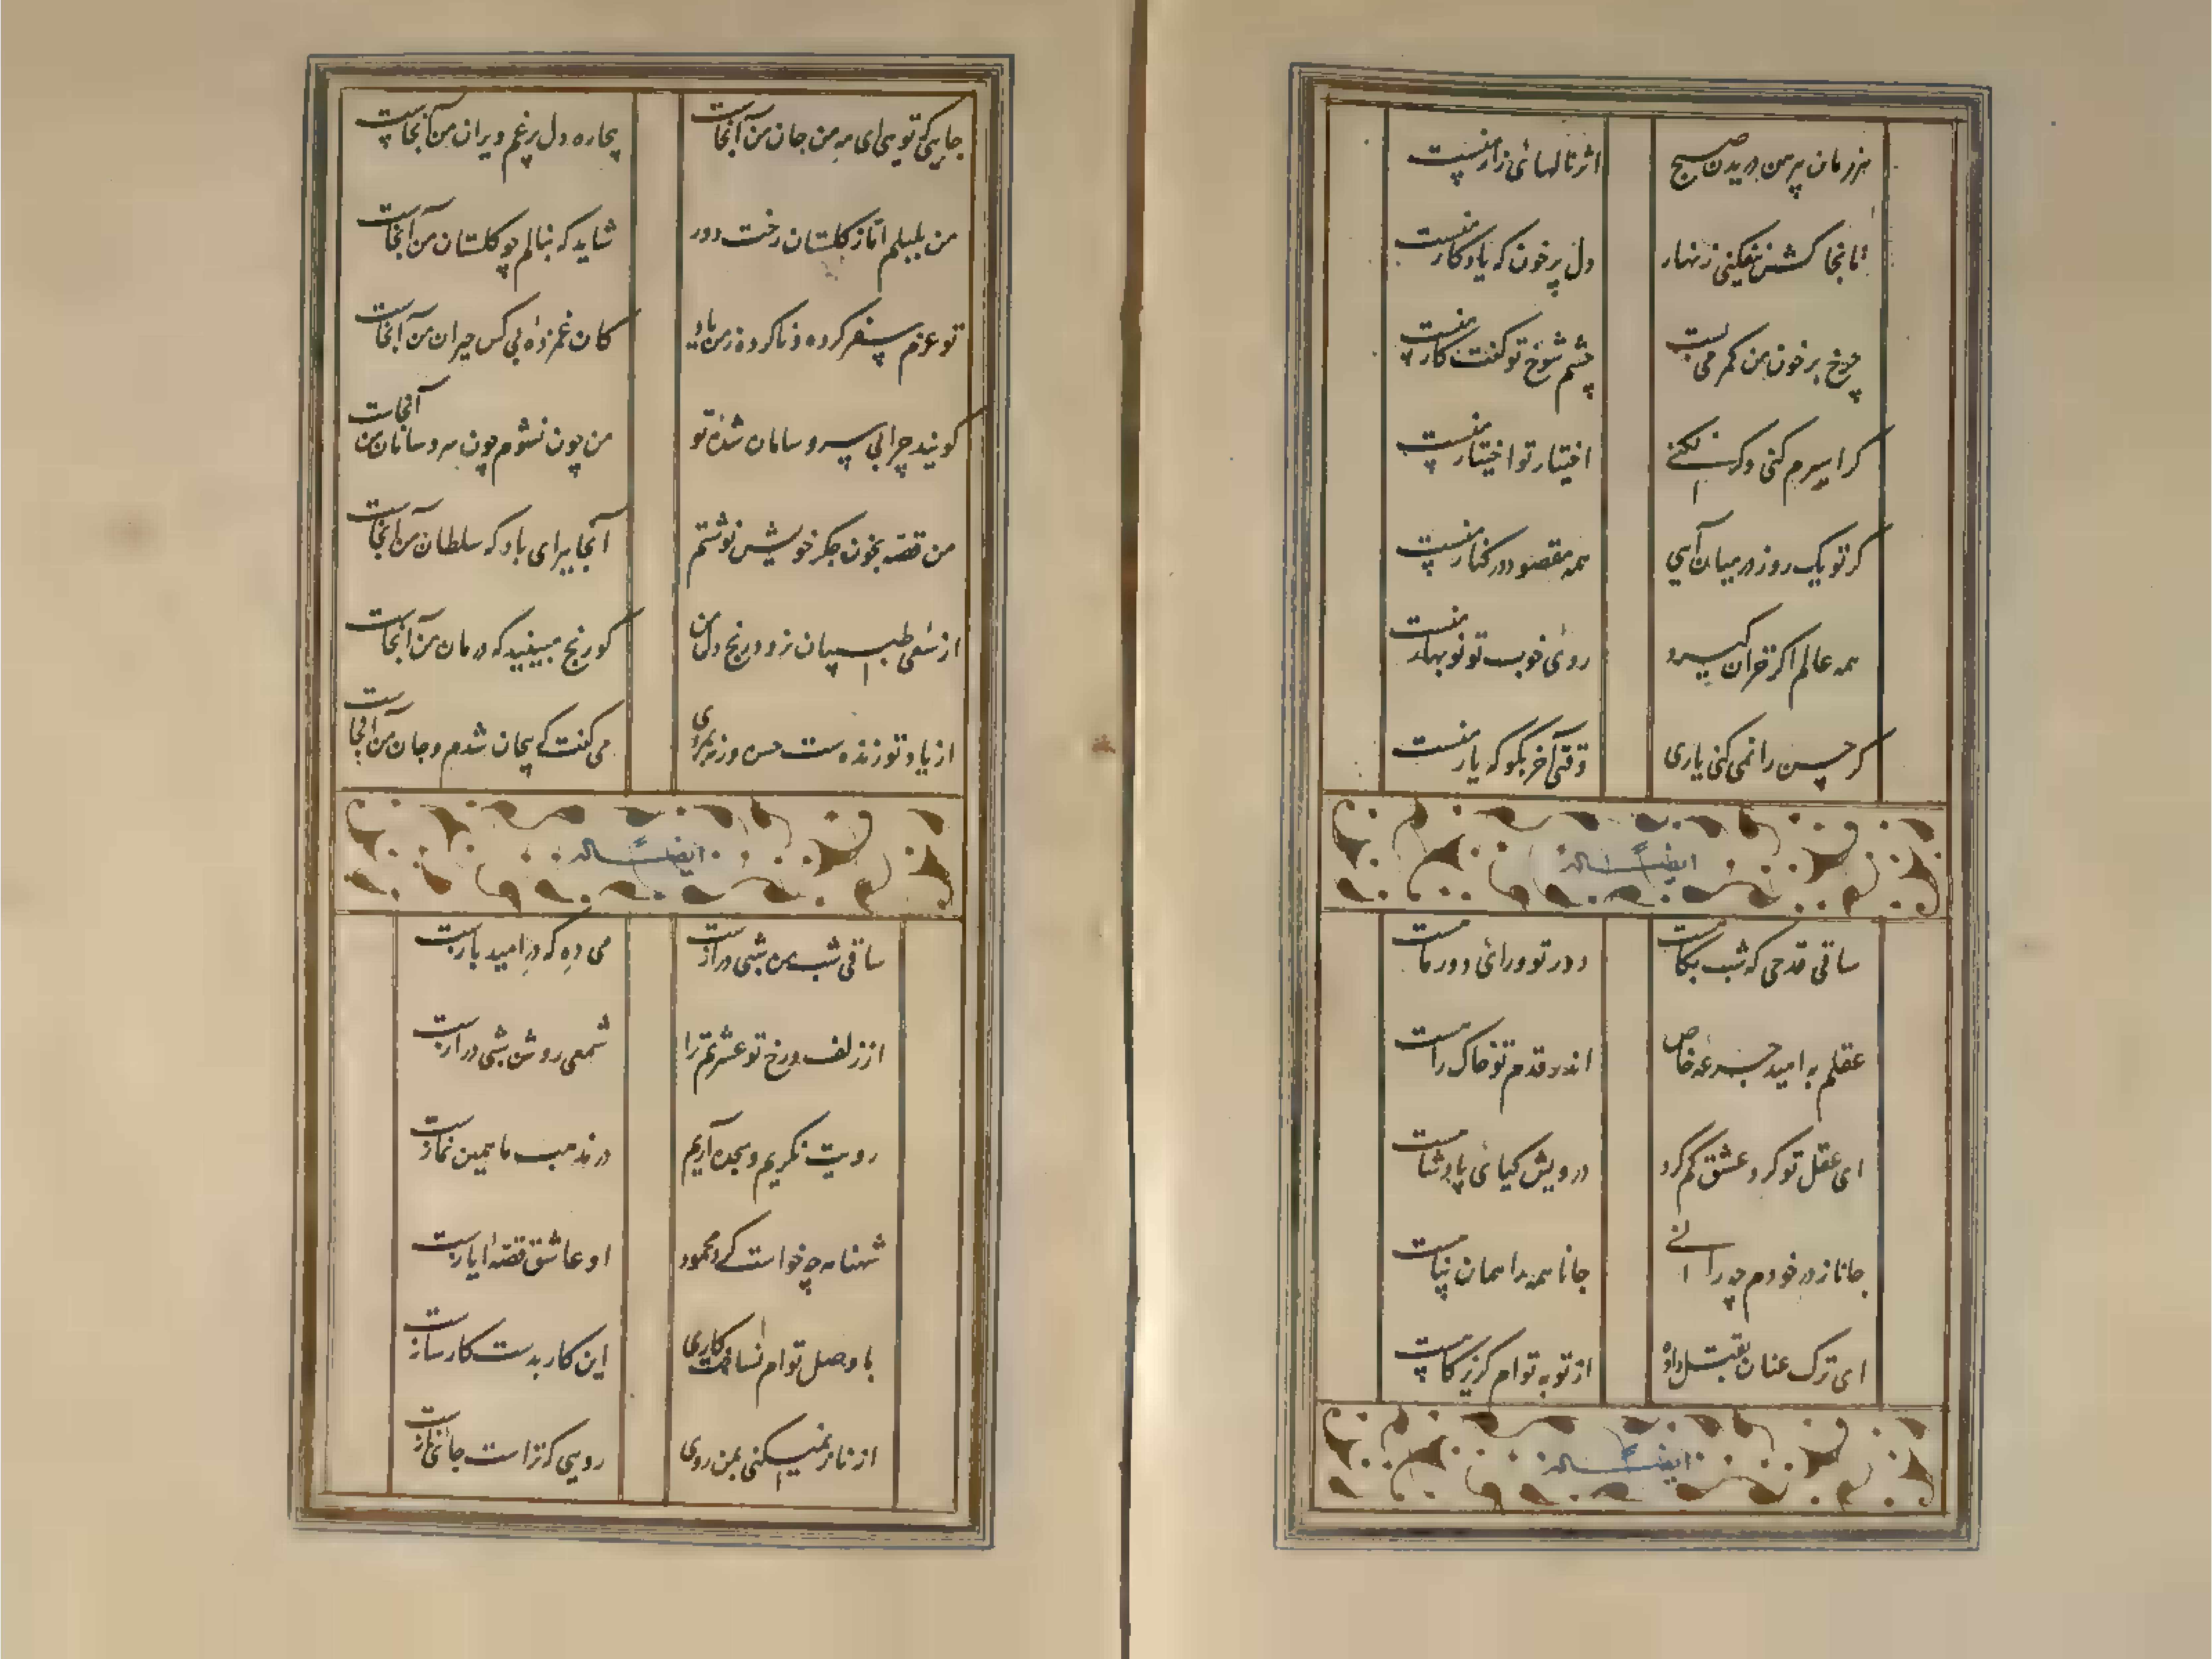 هر زمان پیرهن دریدن صبح
اثر نالهائی زار منست
تا بخاکش نفکنی زنهار
دل پرخون که یادکار منست
چرخ بر خون من کمر می بست
چشم شوخ تو کفت کار منست
کر اسیرم کنی وکر نکنی
اختیار تو اختیار منست
کر تو یک روز در میان آیی
همه مقصود در کنار منست
همه عالم اکر خزان کیرد
روی خوب تو نوبهار منست
کر حسن را نمی کنی یاری
وقتی آخر بکو که یار منست
ایضاً له
ساقی قدحی که شب بکاست
دور تو ورائی دور ماست
عقلم به امید جرعه خاص
اندر قدم تو خاک راست
ای عقل تو کرد عشق کم کرد
درویش کیائی پادشاست
جانا ز در خودم چه رانی
جانا همه را همان پناست
ای ترک عنان بقتل داده
از تو به توام کریزکاست
ایضاً له
جایی که تویی ای مه من جان من آنجاست
بیچاره دل پرغم ویران من آنجاست
من بلبلم اما ز کلستان رخت دور
شاید که بنالم چو کلستان من آنجاست
تو عزم سفر کرده و نا کرده ز من یاد
کان غمزدهٔ بی کس حیران من آنجاست
کویند چرا بی سر و سامان شدهٔ تو
من چون نشوم چون سر و سامان من آنجاست
من قصه بخون جکر خویش نوشتم
آنجا ببر ای باد که سلطان من آنجاست
از سعی طبیبان نرود رنج دل من
کو رنج مبینید که درمان من آنجاست
از یاد تو زنده ست حسن ورنه بمردی
می کفت که بیجان شدم و جان من آنجاست
ایضاً له
ساقی شب من شبی درازست
می ده که در امید بازست
از زلف و رخ تو عشرتم را
شمعی روشن شبی درازست
رویت نکریم و سجده آریم
در مذهب ما همین نمازست
شهنامه چه خواست کرد محمود
او عاشق قصهٔ ایازست
با وصل توام نساخت کاری
این کار بدست کارسازست
از ناز نمیکنی بمن روی
رویی که تراست جائی نازست